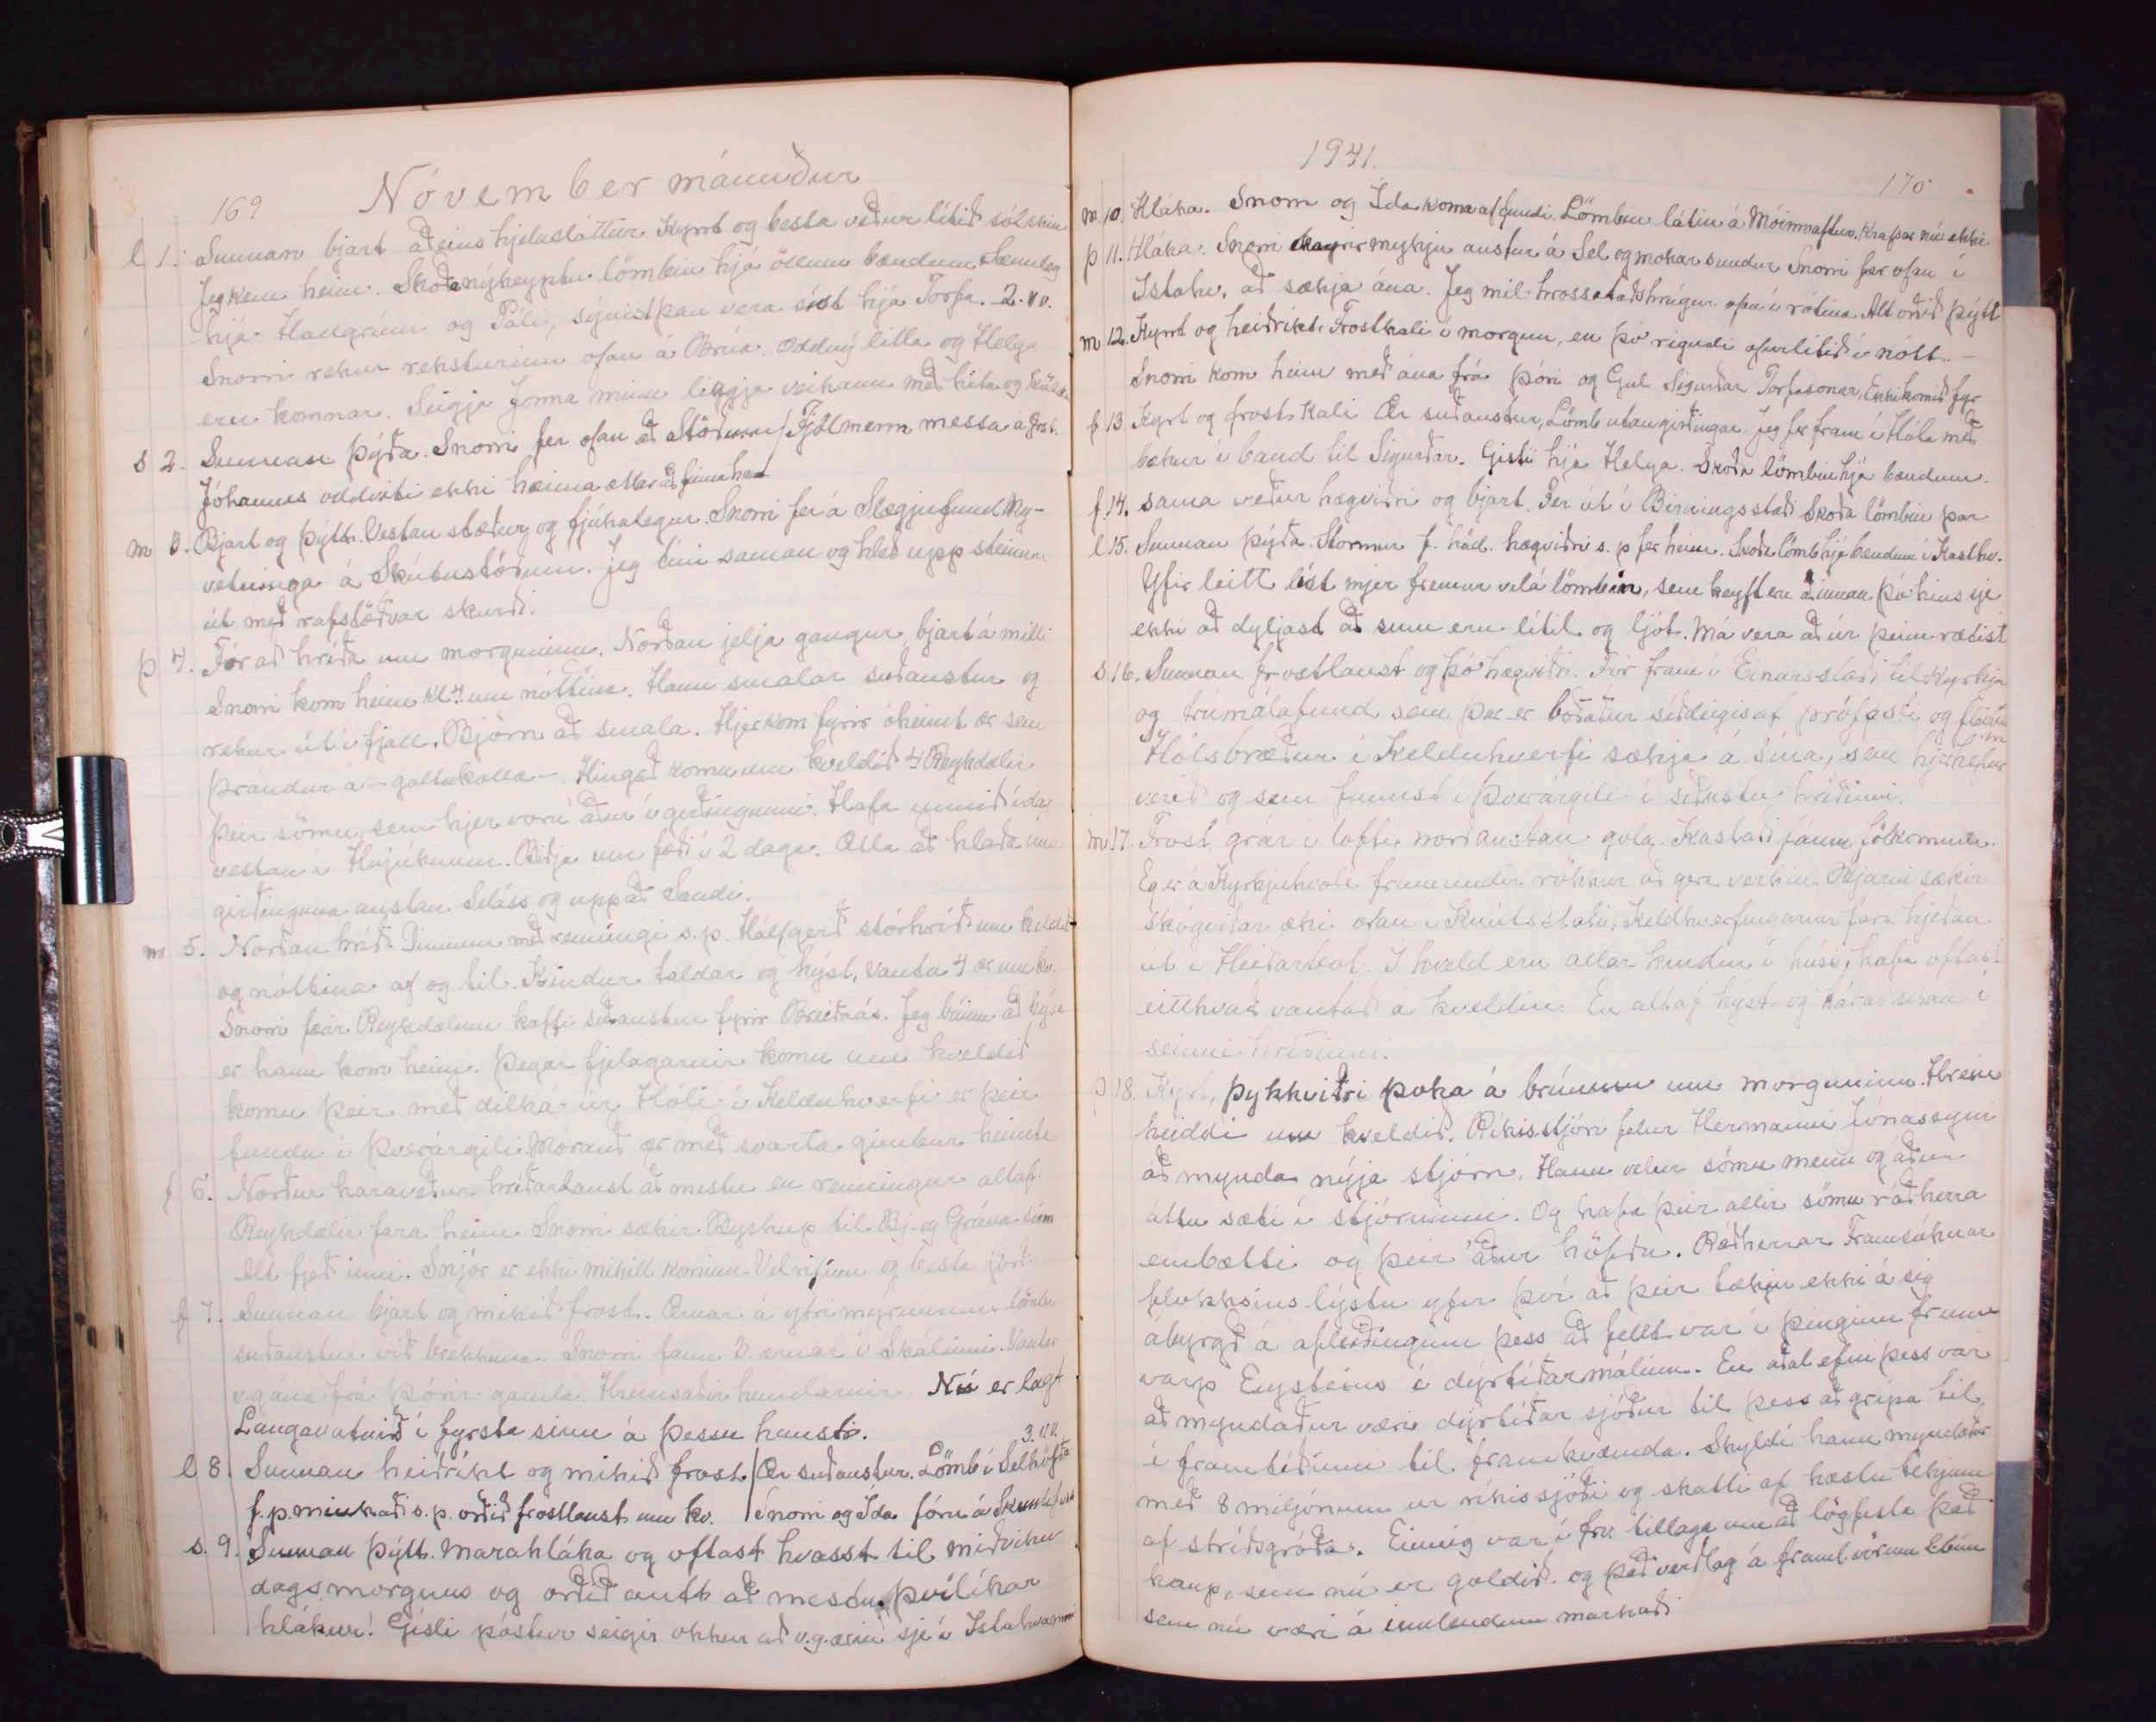 169
Nóvember mánuður
l 1. Sunnan bjart aðeins hjelusláttur. Kyrrt og besta veður lítið sólskin
Jeg kem heim. Skoða nýkeyptu lömbin hjá öllum bændum
hjá Hallgrími og Páli, sýnist þau vera síst hjá Torfa. 2. v.v.
Snorri rekur reksturinn ofan á Brúa. Oddný litla og Helga
eru komnar. Seigja Jonna minn liggja veikann með hita og
s 2. Sunnan þýða. Snorri fer ofan að Stöðum / Fjölmenn messa á Grst.
Jóhannes oddviti ekki heima ætlar að finna hann
m 3. Bjart og þýtt. Vestan stæður og fjúkalegur. Snorri fer á Slægjufund Mý-
vetninga á Skútustöðum. Jeg tíni saman og hleð upp steinum
út með rafstöðvar skurði.
þ 4. Fór að hríða um morguninn. Norðan jelja gangur, bjart á milli
Snorri kom heim kl 4 um nóttina. Hann smalar suðaustur og
rekur út í fjall. Björn að smala. Hjer kom fyrir óheimt ær sem
Þrándur á - goltukolla -. Hingað komu um kveldið 4 Reykdælir
þeir sömu, sem hjer voru áður í girðingunni. Hafa unnið í dag
vestan í Hnjúknum. Biðja um fæði í 2 daga. Ætla að hlaða um
girðinguna austan Seláss og upp að Sandi.
m 5. Norðan hríð. Dimmur með renningi s.p. Hálfgerð stórhríð um kveldið
og nóttina af og til. Kindur taldar og hýst, vantar 4 ær um kv.
Snorri færir Reykdælum kaffi suðaustur fyrir Breiðaás. Jeg búinn að hýsa
er hann kom heim. Þegar fjelagarnir komu um kveldið
komu þeir með dilká úr Hóli í Kelduhverfi er þeir
fundu í Þverárgili. Mórauð ær með svarta gimbur heimti
f 6. Norður haraveður hríðarlaust að mestu en renningur altaf.
Reykdælir fara heim. Snorri sækir Reyshup til Bj. og Grána sinn
Alt fjeð inni. Snjór er ekki mikill kominn. Vel rifinn og besta jörð.
f 7. Sunnan bjart og mikið frost. Ærnar á ytri mýrinni lömbin
suðaustur við brekkuna. Snorri fann 3 ærnar í Skálinni. Vantar
v.g. ána frá Þórir gamla. Hreinsaðir hundarnir. Nú er lagt
Langavatnið í fyrsta sinn á þessu hausti.
3. v.v.
l 8. Sunnan heiðríkt og mikið frost / Ær suðaustur. Lömb í Selhöfða
f.p. minkaði s.p. orðið frostlaust um kv. / Snorri og Ída fóru á
s. 9. Sunnan þýtt. Marahláka og oftast hvasst til miðviku
dagsmorguns og orðið autt að mestu. Þvílíkar
hlákur! Gísli póstur seigir okkur að v.g. ærin sje í Istahvammi
1941.
170
m. 10. Hláka. Snorri og Ída koma af fundi. Lömbin látin á Móinn aftur. Krafsar nú ekki
þ 11. Hláka. Snorri keyrir mykju austur á Sel og mokar sundur. Snorri fer ofan í
Istahv. að sækja ána. Jeg mil hrossataðshrúgur ofan í rótina. Alt orðið þýtt
m 12. Kyrrt og heiðríkt. Frostkali í morgun, en þó rigndi ofurlítið í nótt. -
Snorri kom heim með ána frá Þóri og Gul Sigurðar Torfasonar. Ekki komið fyr
f. 13. Kyrt og frost kali Ær suðaustur, Lömb utangirðingar. Jeg fer fram í Hóla með
bækur í band til Sigurðar. Gisti hjá Helga. Skoða lömbin hjá bændum.
f. 14. sama veður hægviðri og bjart. Fer út í Birningsstaði Skoða lömbin þar
l 15. Sunnan þýða. Stormur f. hád. hægviðri s. p fer heim. Skoða lömb hjá bændum í Kasthv.
Yfir leitt líst mjer fremur vel á lömbin, sem keyft eru að innan þó hins sje
ekki að dyljast að sum eru lítil og ljót. Má vera að úr þeim rætist
s 16. Sunnan frostlaust og þó hægviðri. Fór fram í Einarsstaði til kyrkju
og trúmálafund sem þar er boðaður síðdegis af prófasti og fleirum
Hólsbræður í Kelduhverfi sækja á sína, sem hjer hefur
verið og sem fannst í Þverárgili í síðustu hríðinni.
m 17. Frost, grár í lofti norðaustan gola. Kastaði fáum fölkornum.
Eg er á Kyrkjuhvoli fram undir rökkur að gera verkin. Bjarni sækir
skógviðar æki ofan í Knútsstaði. Keldhverfingarnir fara hjeðan
út í Heiðarbót. Í kveld eru allar kindur í húsi, hafa oftast
eitthvað vantað á kveldin. En altaf hyst og hárað síðan í
seinni hríðinni.
þ 18. Kyrt, þykkviðri þoka á brúnum um morguninn. Hrein
heiddi um kveldið. Ríkisstjóri felur Hermanni Jónassyni
að mynda nýja stjórn. Hann velur sömu menn og áður
áttu sæti í stjórninni. Og hafa þeir allir sömu ráðherra
embætti og þeir áður höfðu. Ráðherrar Framsóknar
flokksins lýstu yfir því að þeir tækju ekki á sig
ábyrgð á afleiðingum þess að fellt var í þinginu frum
varp Eysteins í dýrtíðarmálum. En aðal efni þess var
að myndaður væri dýrtíðar sjóður til þess að grípa til
í framtíðinni til framkvæmda. Skyldi hann myndaður
með 8 miljónum úr ríkissjóði og skatti af hæstu tekjum
af stríðsgróða. Einnig var í frv. tillaga um að lögfesta það
kaup, sem nú er goldið, og það verðlag á framl. vörum
sem nú væri á innlendum markaði